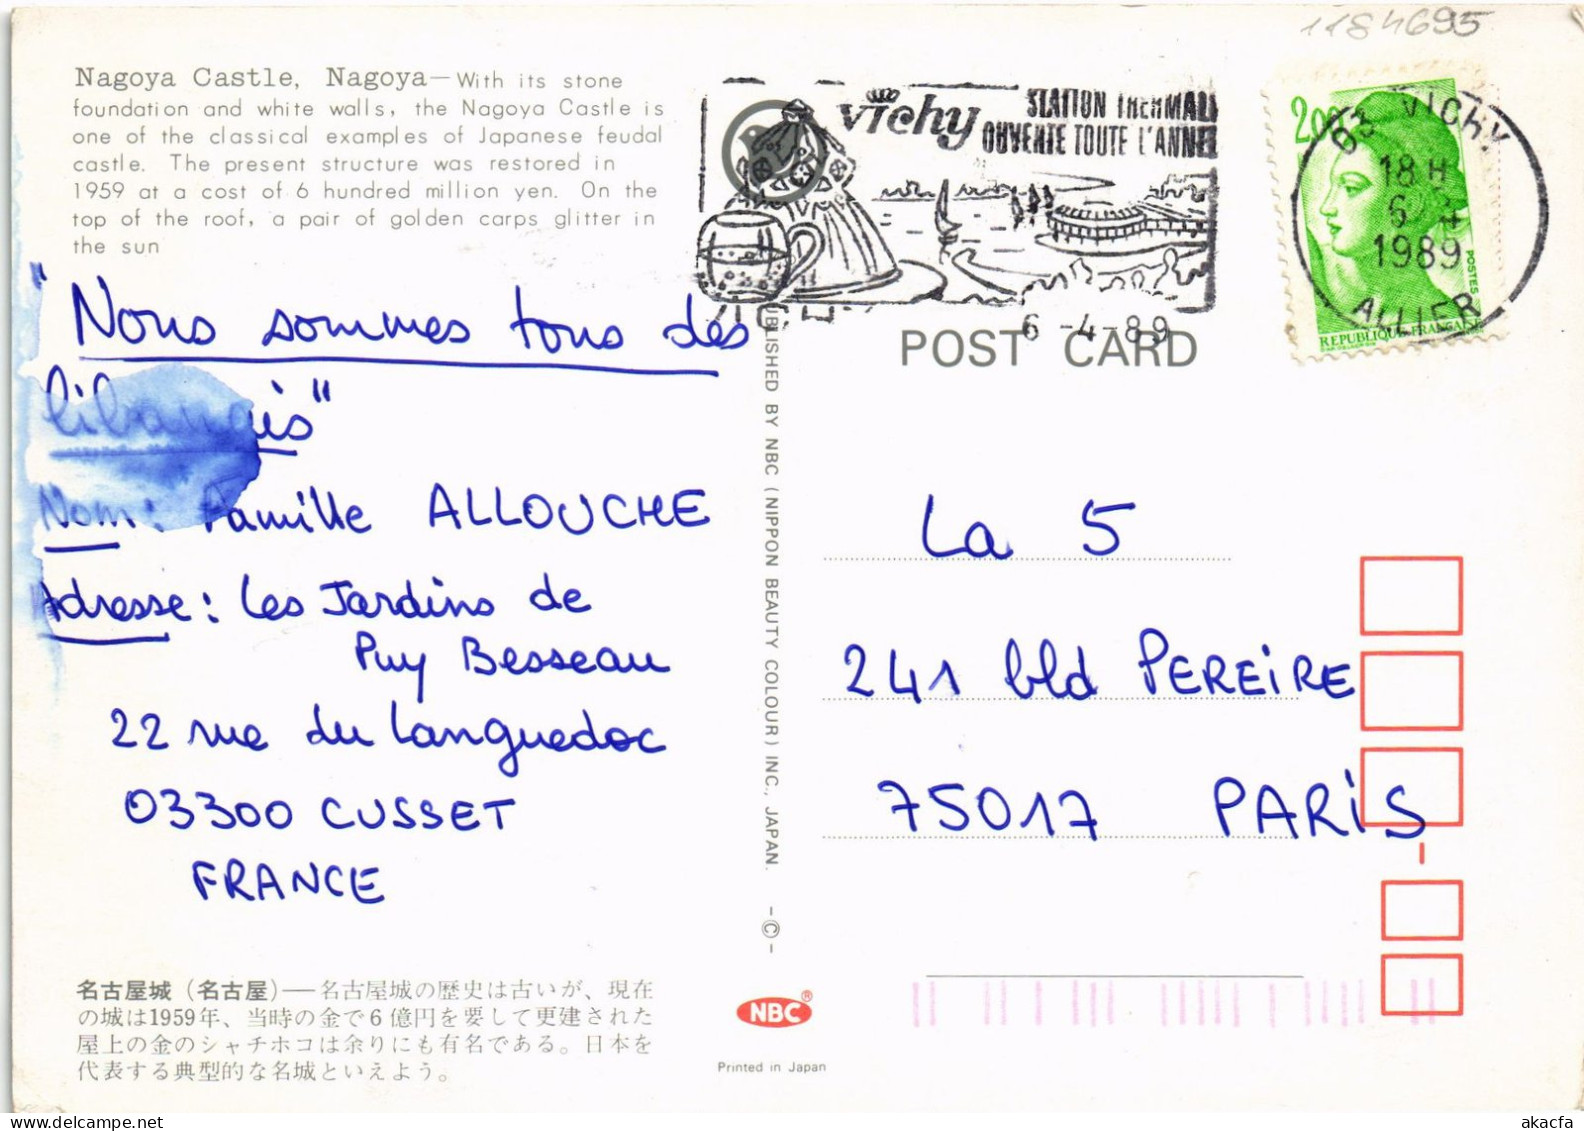 1184695
Nagoya Castle, Nagoya—With its stone
foundation and white walls, the Nagoya Castle is
one of the classical examples of Japanese feudal
castle. The present structure was restored in
1959 at a cost of 6 hundred million yen. On the
top of the roof, a pair of golden carps glitter in
the sun
vichy
STATION THERMALE
OUVERTE TOUTE L'ANNEE
6-4-89
2,00
POSTES
REPUBLIQUE FRANÇAISE
03 VICHY
18 H
6
1989
ALLIER
POST CARD
"Nous sommes tous des
libanais"
Nom: Famille ALLOUCHE
Adresse: Les Jardins de
Puy Besseau
22 rue du Languedoc
03300 CUSSET
FRANCE
PUBLISHED BY NBC (NIPPON BEAUTY COLOUR) INC., JAPAN. -©-
La 5
241 bld PEREiRE
75017 PARiS
名古屋城（名古屋）—名古屋城の歴史は古いが、現在
の城は1959年、当時の金で6億円を要して更建された
屋上の金のシャチホコは余りにも有名である。日本を
代表する典型的な名城といえよう。
NBC®
Printed in Japan
akacfa